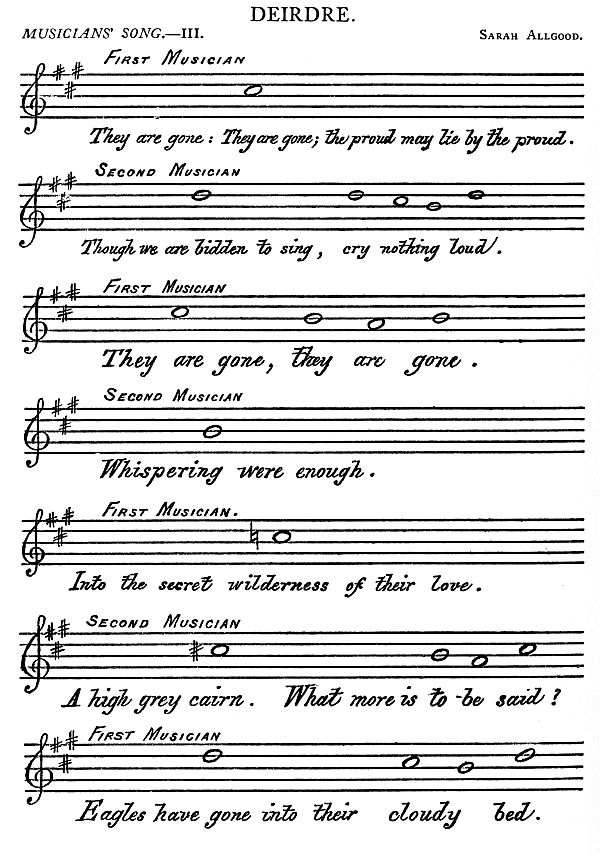 DEIRDRE.
MUSICIANS' SONG.—III. SARAH ALLGOOD.
FIRST MUSICIAN
They are gone: They are gone; the proud may lie by the proud.
SECOND MUSICIAN
Though we are bidden to sing, cry nothing loud.
FIRST MUSICIAN
They are gone, they are gone.
SECOND MUSICIAN
Whispering were enough.
FIRST MUSICIAN.
Into the secret wilderness of their love.
SECOND MUSICIAN
A high grey cairn. What more is to be said?
FIRST MUSICIAN
Eagles have gone into their cloudy bed.